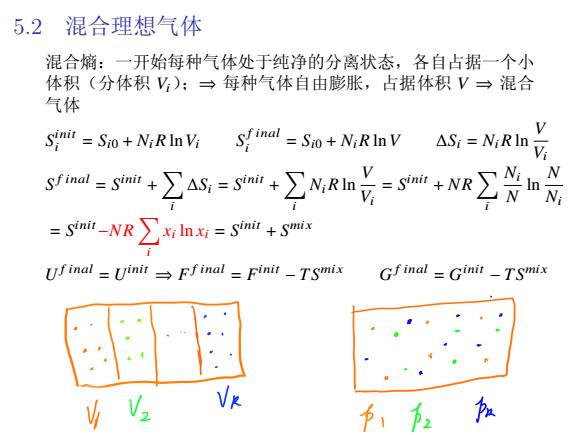 5.2 混合理想气体
混合熵：一开始每种气体处于纯净的分离状态，各自占据一个小
体积（分体积 V_i）；⇒ 每种气体自由膨胀，占据体积 V ⇒ 混合
气体
S_i^{init} = S_{i0} + N_i R ln V_i  S_i^{final} = S_{i0} + N_i R ln V  ΔS_i = N_i R ln \frac{V}{V_i}
S^{final} = S^{init} + \sum_i ΔS_i = S^{init} + \sum_i N_i R ln \frac{V}{V_i} = S^{init} + NR \sum_i \frac{N_i}{N} ln \frac{N}{N_i}
= S^{init} − NR \sum_i x_i ln x_i = S^{init} + S^{mix}
U^{final} = U^{init} ⇒ F^{final} = F^{init} − TS^{mix}  G^{final} = G^{init} − TS^{mix}
V_1 V_2 V_k p_1 p_2 p_k